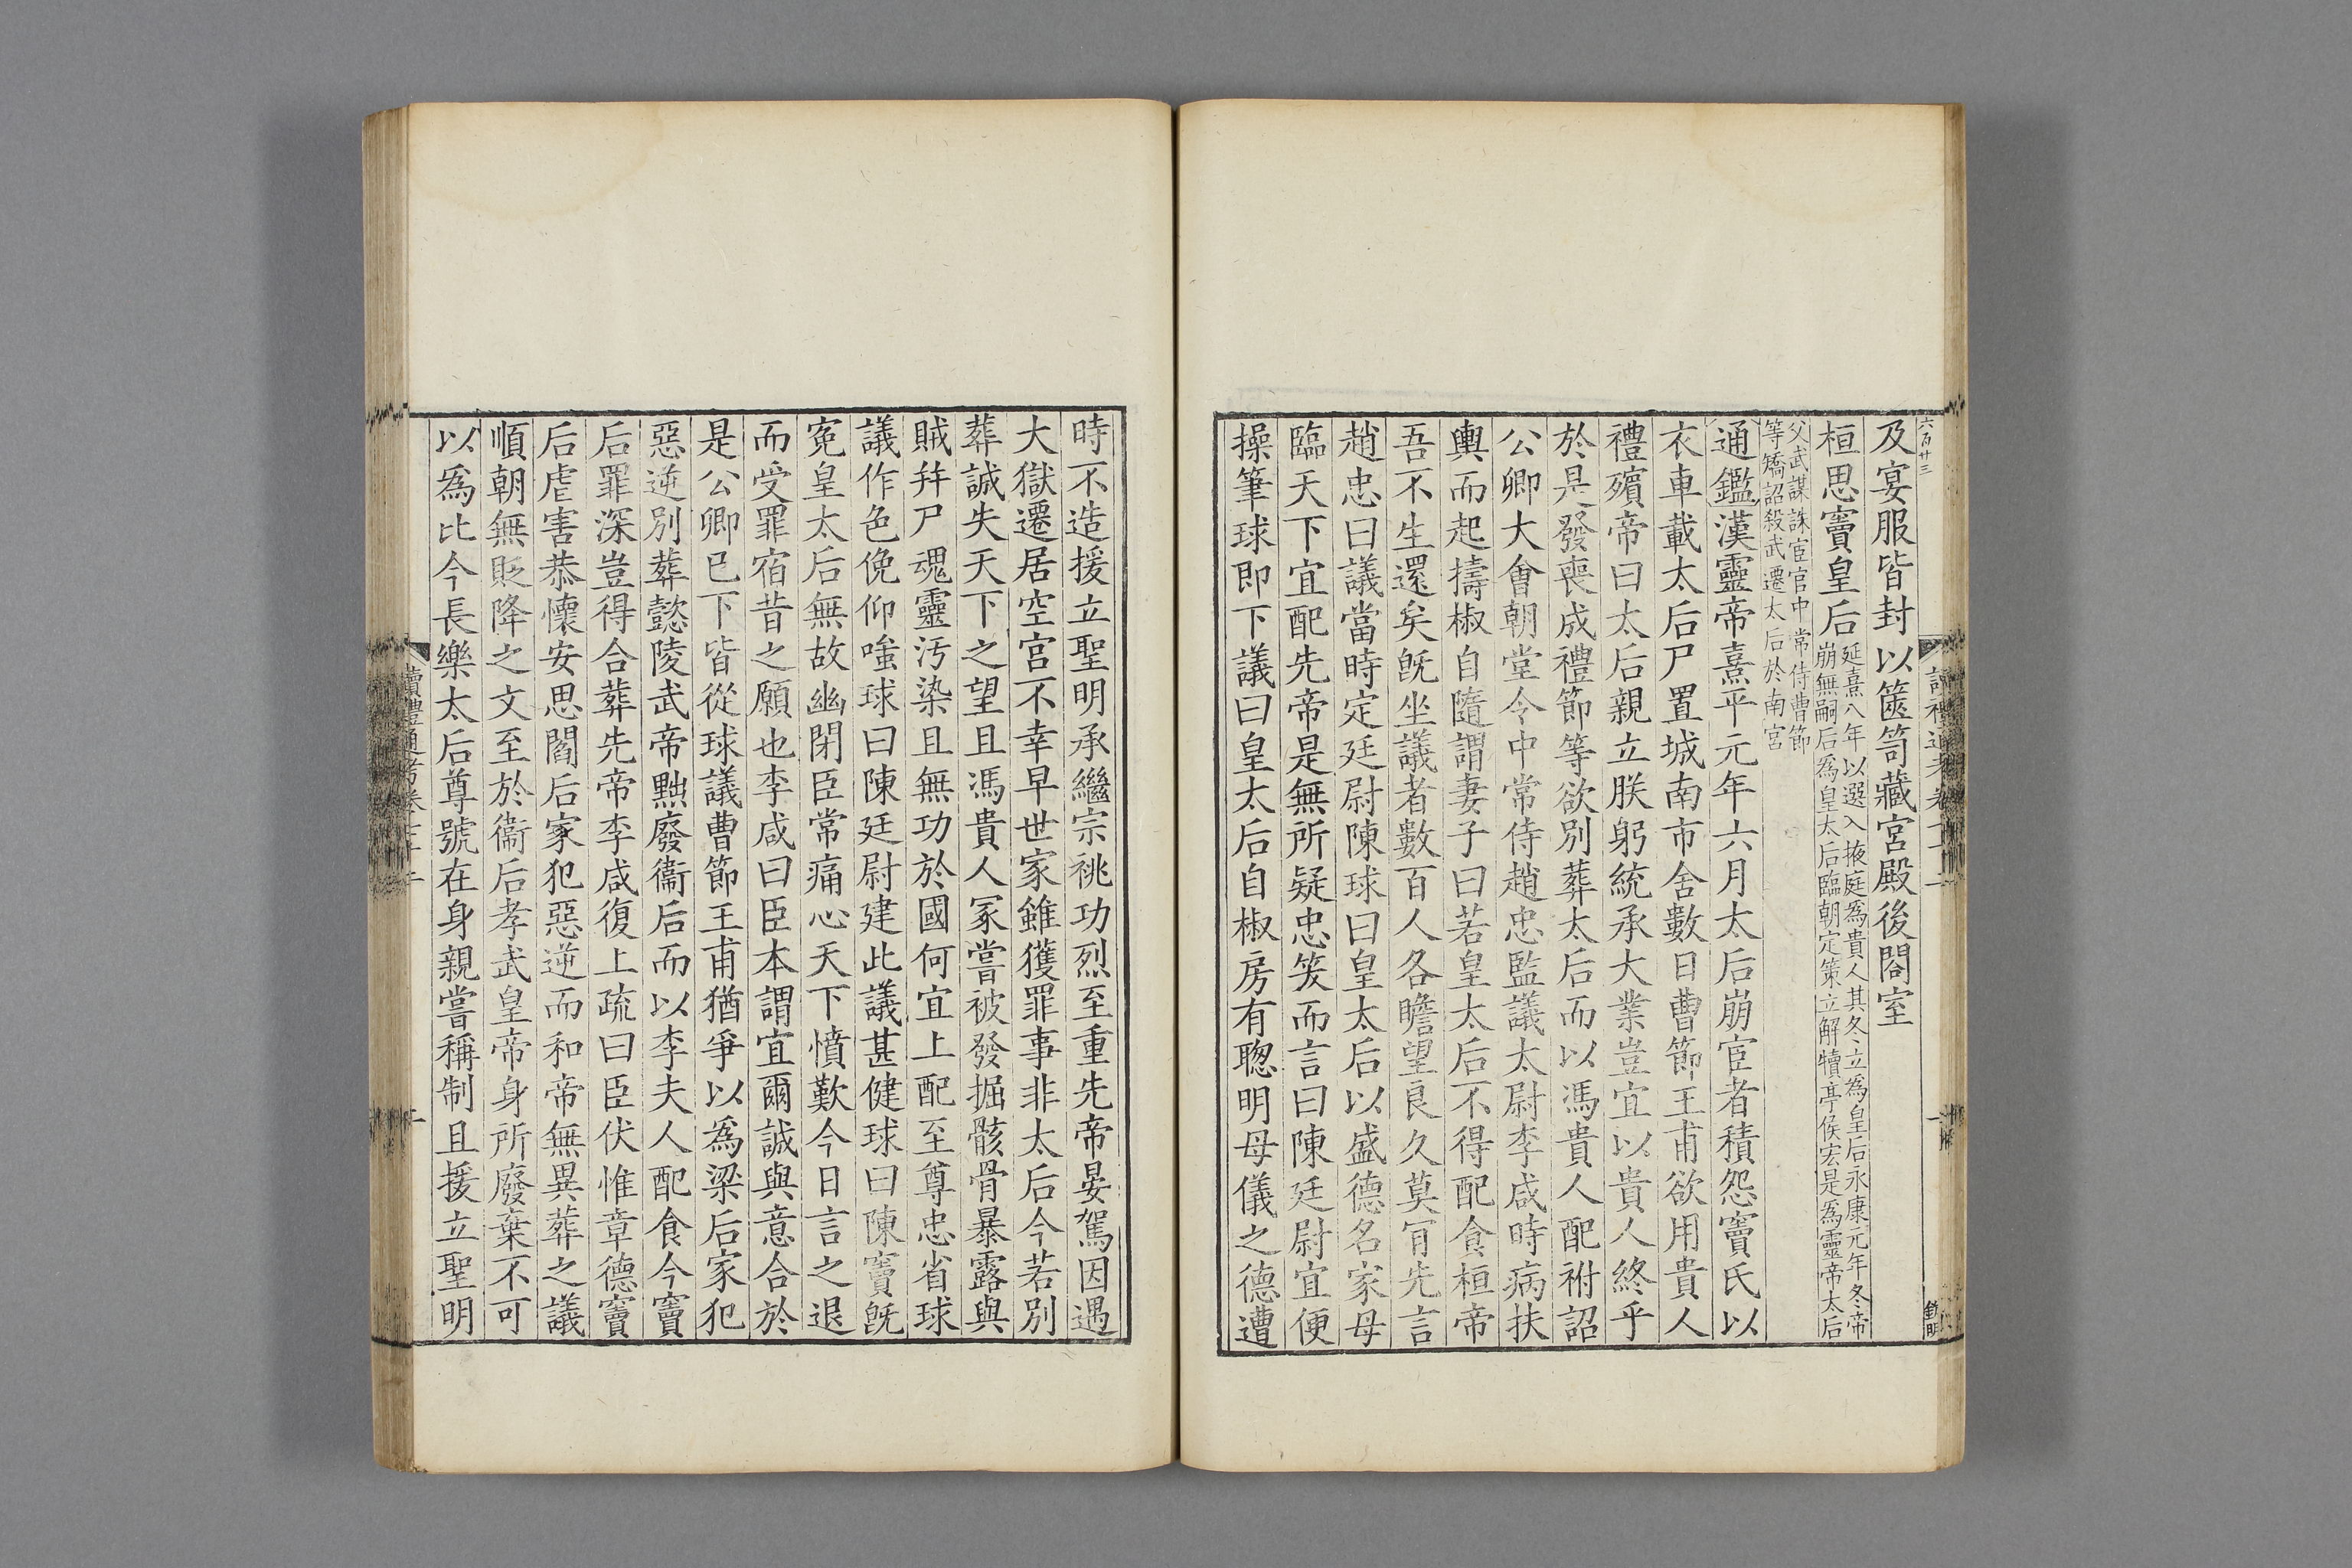 六百廿三
及宴服皆封以篋笥藏宮殿後閤室
桓思竇皇后延熹八年以選入掖庭爲貴人其冬立爲皇后永康元年冬帝
崩無嗣后爲皇太后臨朝定策立解犢亭侯宏是爲靈帝太后
父武謀誅宦官中常侍曹節
等矯詔殺武遷太后於南宮
通鑑漢靈帝熹平元年六月太后崩宦者積怨竇氏以
衣車載太后尸置城南市舍數日曹節王甫欲用貴人
禮殯帝曰太后親立朕躬統承大業豈宜以貴人終乎
於是發喪成禮節等欲別葬太后而以馮貴人配祔詔
公卿大會朝堂令中常侍趙忠監議太尉李咸時病扶
輿而起擣椒自隨謂妻子曰若皇太后不得配食桓帝
吾不生還矣旣坐議者數百人各瞻望良久莫肎先言
趙忠曰議當時定廷尉陳球曰皇太后以盛德名家母
臨天下宜配先帝是無所疑忠笑而言曰陳廷尉宜便
操筆球即下議曰皇太后自椒房有聰明母儀之德遭
時不造援立聖明承繼宗祧功烈至重先帝晏駕因遇
大獄遷居空宮不幸早世家雖獲罪事非太后今若別
葬誠失天下之望且馮貴人冢嘗被發掘骸骨暴露與
賊并尸魂靈汚染且無功於國何宜上配至尊忠省球
議作色俛仰嗤球曰陳廷尉建此議甚健球曰陳竇旣
冤皇太后無故幽閉臣常痛心天下憤歎今日言之退
而受罪宿昔之願也李咸曰臣本謂宜爾誠與意合於
是公卿已下皆從球議曹節王甫猶爭以爲梁后家犯
惡逆別葬懿陵武帝黜廢衞后而以李夫人配食今竇
后罪深豈得合葬先帝李咸復上疏曰臣伏惟章德竇
后虐害恭懷安思閻后家犯惡逆而和帝無異葬之議
順朝無貶降之文至於衞后孝武皇帝身所廢棄不可
以爲比今長樂太后尊號在身親嘗稱制且援立聖明
讀禮通考卷